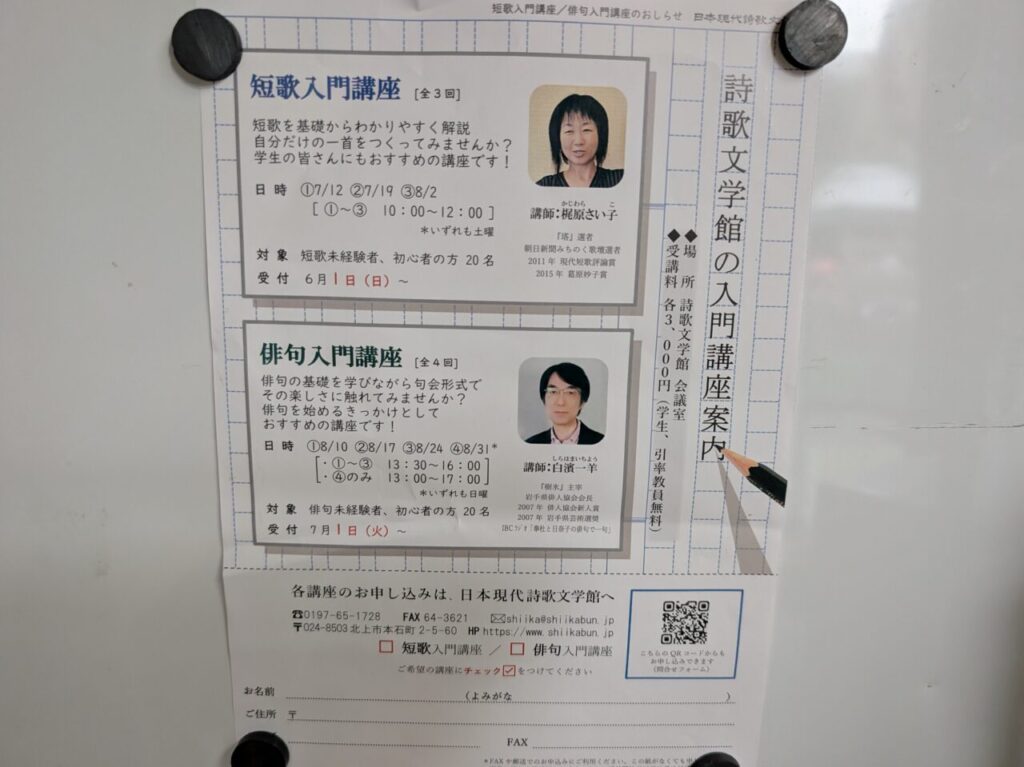 短歌入門講座／俳句入門講座のおしらせ 日本現代詩歌文
詩歌文学館の入門講座案内
◆場 所 詩歌文学館 会議室
◆受講料 各3、000円（学生、引率教員無料）
短歌入門講座 [全３回]
短歌を基礎からわかりやすく解説
自分だけの一首をつくってみませんか？
学生の皆さんにもおすすめの講座です！
日 時 ①7/12 ②7/19 ③8/2
[ ①～③ 10：00～12：00 ]
＊いずれも土曜
対 象 短歌未経験者、初心者の方 20名
受 付 6月1日（日）～
かじわら こ
講師：梶原さい子
『塔』選者
朝日新聞みちのく歌壇選者
2011年 現代短歌評論賞
2015年 葛原妙子賞
俳句入門講座 [全４回]
俳句の基礎を学びながら句会形式で
その楽しさに触れてみませんか？
俳句を始めるきっかけとして
おすすめの講座です！
日 時 ①8/10 ②8/17 ③8/24 ④8/31*
・①～③ 13：30～16：00
・④のみ 13：00～17：00
＊いずれも日曜
対 象 俳句未経験者、初心者の方 20名
受 付 7月1日（火）～
しらはまいちよう
講師：白濱一羊
『樹氷』主宰
岩手県俳人協会会長
2007年 俳人協会新人賞
2007年 岩手県芸術選奨
IBCラジオ「奉社と日奈子の俳句で一句」
各講座のお申し込みは、日本現代詩歌文学館へ
☎0197-65-1728 FAX 64-3621 ✉shiika@shiikabun.jp
〒024-8503 北上市本石町2-5-60 HP https://www.shiikabun.jp
□ 短歌入門講座 ／ □ 俳句入門講座
ご希望の講座にチェック☑をつけてください
こちらのQRコードからも
お申し込みできます
（問合せフォーム）
お名前 （よみがな ）
ご住所 〒
FAX
＊FAXや郵送でのお申込みにご利用ください。この紙がなくても申